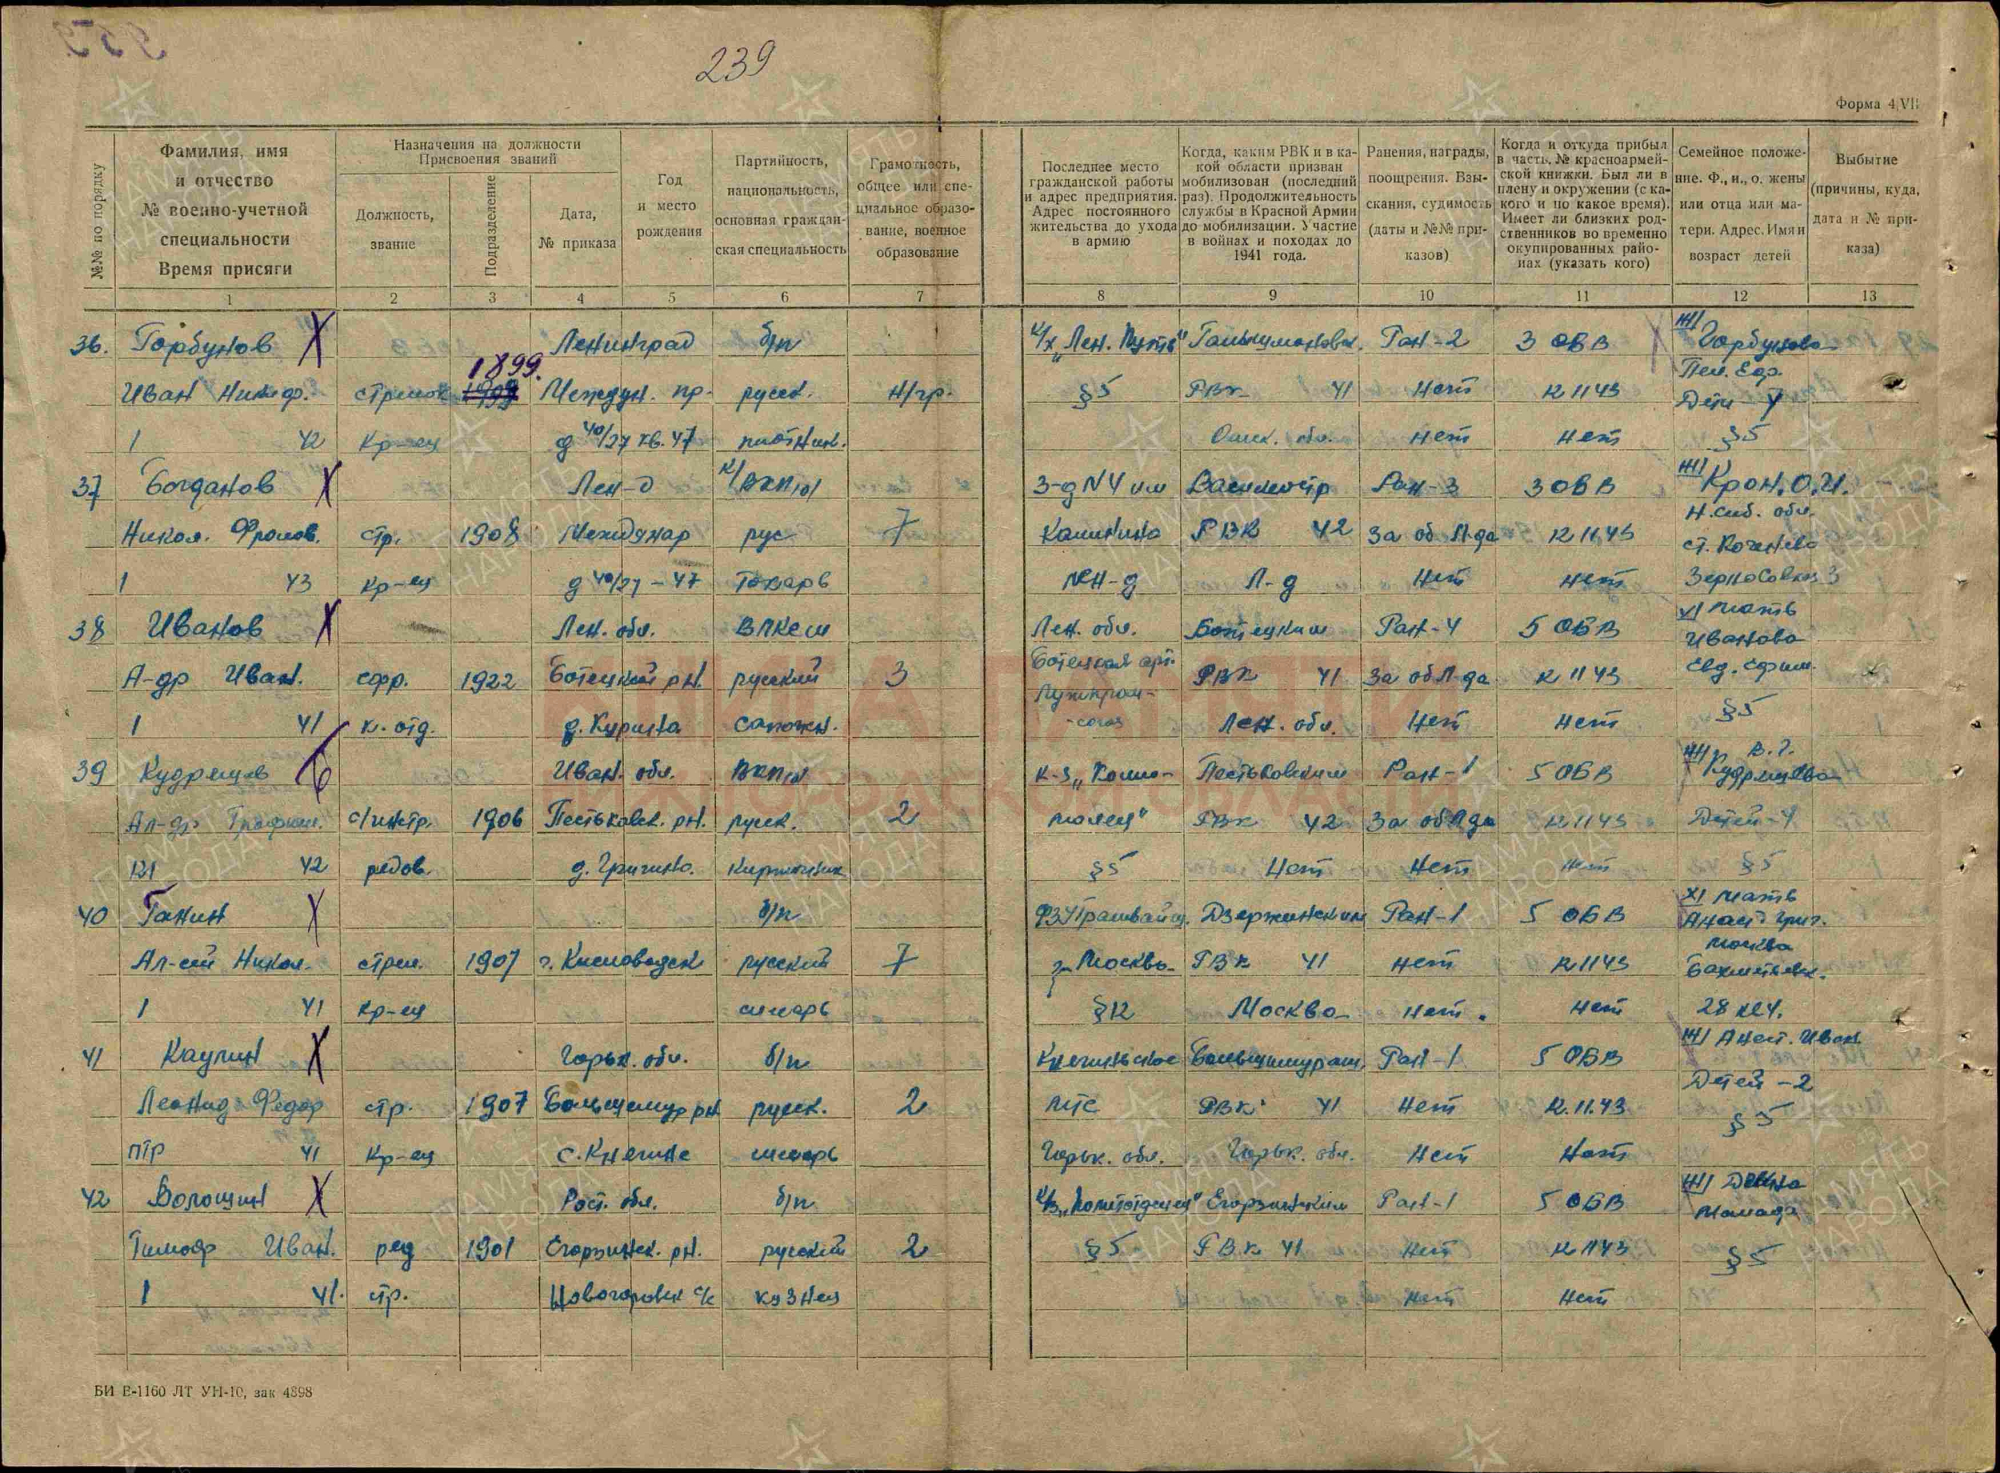 239
Форма 4/VII
№№ по порядку
Фамилия, имя и отчество № военно-учетной специальности Время присяги
Назначения на должности Присвоения званий
Должность, звание
Подразделение
Дата, № приказа
Год и место рождения
Партийность, национальность, основная гражданская специальность
Грамотность, общее или специальное образование, военное образование
Последнее место гражданской работы и адрес предприятия. Адрес постоянного жительства до ухода в армию
Когда, каким РВК и в какой области призван мобилизован (последний раз). Продолжительность службы в Красной Армии до мобилизации. Участие в войнах и походах до 1941 года.
Ранения, награды, поощрения. Взыскания, судимость (даты и №№ приказов)
Когда и откуда прибыл в часть, № красноармейской книжки. Был ли в плену и окружении (с какого и по какое время). Имеет ли близких родственников во временно окупированных районах (указать кого)
Семейное положение. Ф., и., о. жены или отца или матери. Адрес. Имя и возраст детей
Выбытие (причины, куда, дата и № приказа)
1 2 3 4 5 6 7 8 9 10 11 12 13
36. Горбунов Х Ленинград б/п к/х "Лен. Путь" Ран-2 3 ОВВ Ж/ Горбунова
1899.
Иван Никиф. стрелок Междун. пр. русск. Н/гр. §5 РВК 41 Нет К 11 43 Дети-4
1 42 Кр-ец д 40/27 кв. 47 плотник. Омск. обл. нет нет §5
37 Богданов Х Лен-д к/ВКП/б/ З-д N4 им Василеостр Ран-3 3 ОВВ Ж/ Крон. О.И.
Никол. Фролов. стр. 1908 Междунар рус 7 Калинина РВК 42 За об Л-да К 11.43 Н. сиб. обл.
ст. Коченево
1 43 Кр-ец д 40/27-47 Токарь лен-д Л-д Нет нет Зерносовхоз
38 Иванов Х Лен. обл. ВЛКСМ Лен. обл. Батецким Ран-4 5 ОБВ Х/ мать
Иванова
А-др Иван. ефр. 1922 Батецкий рн. русский 3 Батецкая арт. РВК 41 За об Л-да К 11 43 Евд. Ефим.
1 41 к. отд. сапожн. -союз Лен. обл. Нет Нет §5
39 Кудряшов Иван. обл. ВКП/б/ К-з "Комсо- Пестяковским Ран-1 5 ОБВ Ж/ Кудряшова В. Г.
Ал-др Трофим. с/инстр. 1906 Пестяковск. рн. русск. 2 молец" РВК 42 За об Л-да К 11 43 Детей-4
42 рядов. §5 Нет Нет Нет §5
40 Ганин Х б/п ФЗУ Трамвайщ. Дзержинским Ран-1 5 ОБВ Х/ мать
Анаст. Григ.
Ал-сей Никол. стрел. 1907 г. Кисловодск русский 7 г. Москва РВК 41 нет К 11 43 Москва
Бахметьевск.
1 41 Кр-ец слесарь §12 Москва Нет. нет 28 кв 4.
41 Каулин Х Горьк. обл. б/п Княгинское Большемураш. Ран-1 5 ОБВ Ж/ Анаст. Иван.
Леонид Федор стр. 1907 Большемур рн. русск. 2 МТС РВК 41 Нет К. 11. 43 Детей-2
ПТР 41 Кр-ец с. Княгине слесарь Горьк. обл. Горьк. обл. Нет Нет §5
42 Волошин Х Рост. обл. б/п к/з "Политотделец" Ран-1 5 ОБВ
Тимоф Иван. ряд 1901 русский 2 §5 РВК 41 Нет К 11 43 §5
1 41. стр. кузнец Нет Нет
БИ Е-1160 ЛТ УН-10, зак 4398
КНИГА ПАМЯТИ
НИЖЕГОРОДСКОЙ ОБЛАСТИ
ПАМЯТЬ НАРОДА